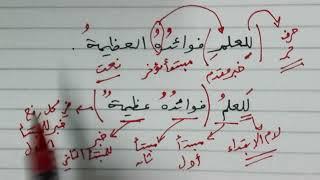 لِلعلمِ (فوائدُهُ) العظيمةُ .
حرف
جر
خبر مقدم
مبتدأ مؤخر
نعت
لَلعلمُ (فوائدُهُ عظيمةٌ)
لام الابتداء
مبتدأ
أول
مبتدأ
ثانٍ
خبر
للمبتدأ الثاني
في محل رفع
خبر للمبتدأ
الأول